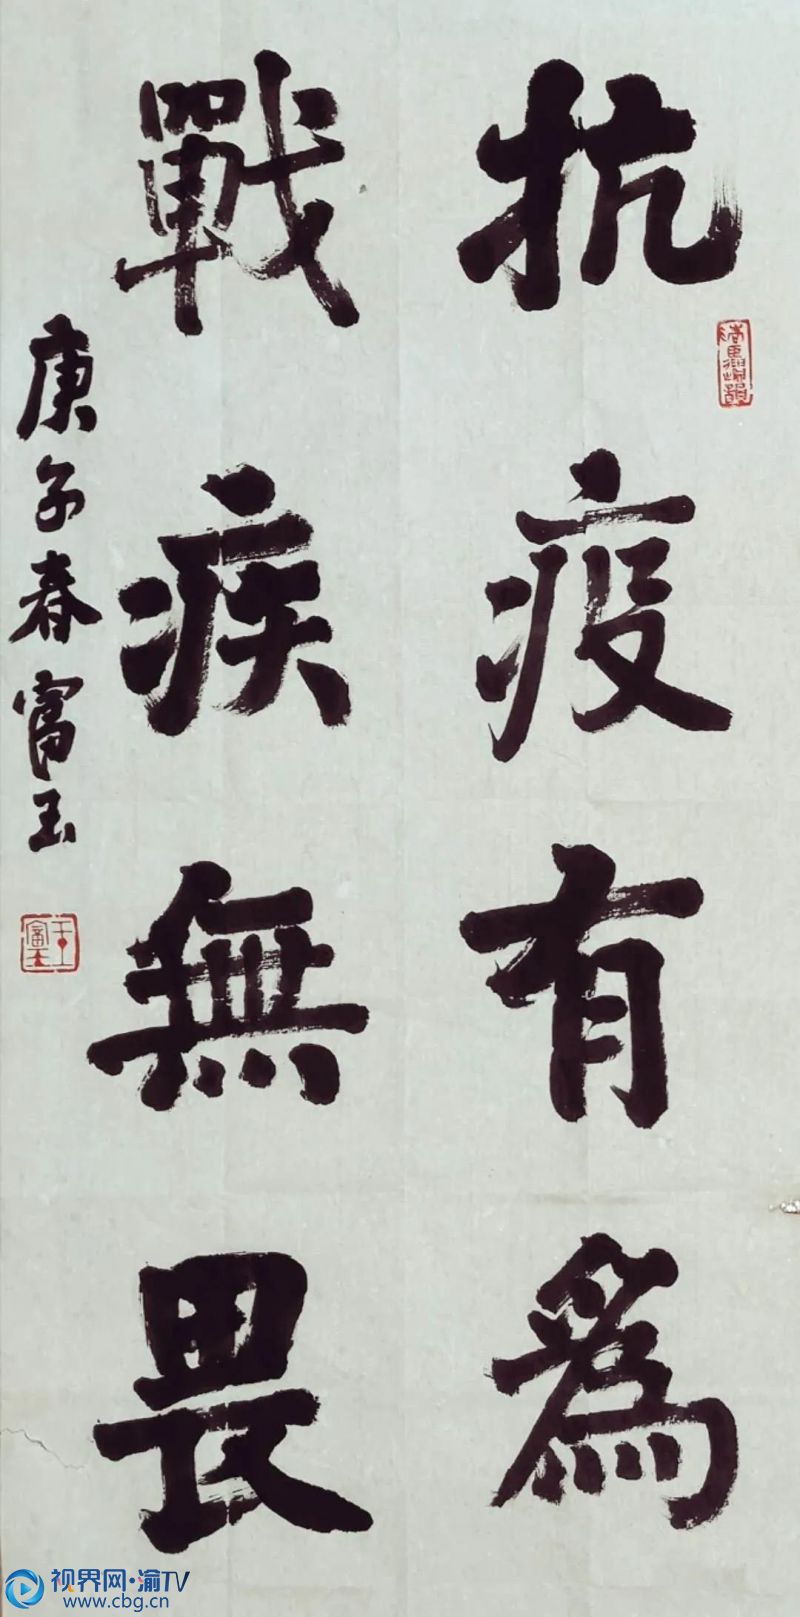 抗疫有爲
戰疾無畏
庚子春富玉
王富玉
视界网·渝TV
www.cbg.cn